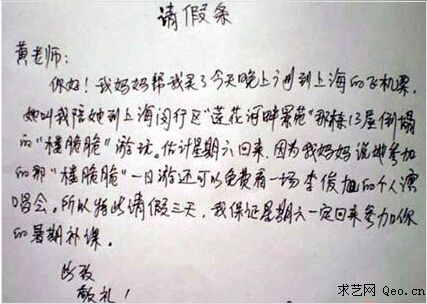 请假条
黄老师：
你好！我妈妈帮我买了今天晚上1刘到上海的飞机票，
她叫我陪她到上海闵行区“莲花河畔景苑”那栋13层倒塌
的“楼脆脆”游玩。估计星期六回来，因为我妈妈说她参加
的那“楼脆脆”一日游还可以免费看一场李俊旭的个人演
唱会。所以特此请假三天，我保证星期六一定回来参加你
的暑期补课。
此致
敬礼！
求艺网 Qeo.cn